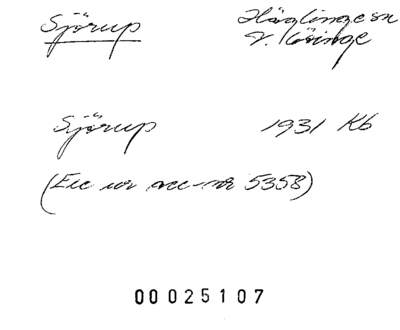 Sjörup Häglinge sn
V. Kösinge
Sjörup 1931 Kb
(Exc ur acc-nr 5358)
00025107